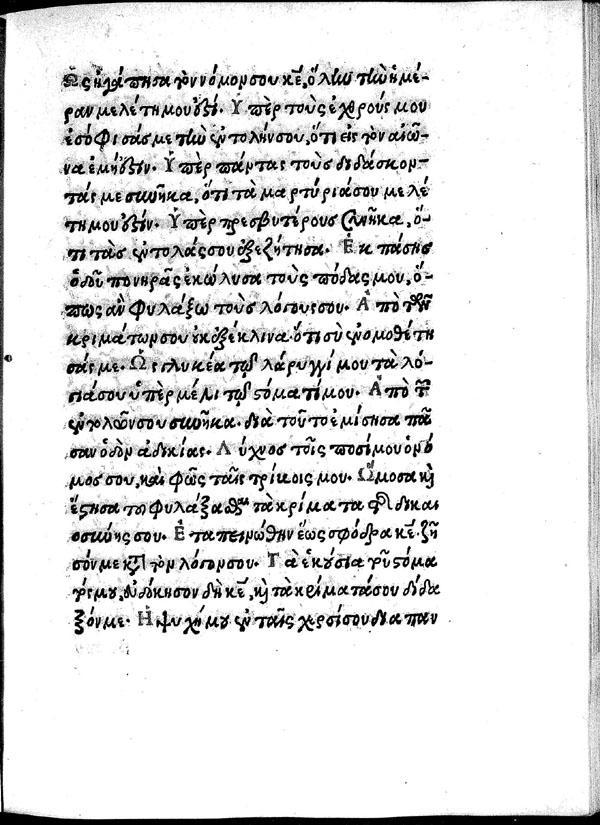 Ὡς ἠγάπησα τὸν νόμον σου κε̅, ὅλην τὴν ἡμέ-
ραν μελέτη μου ἐστί. Ὑπὲρ τοὺς ἐχθρούς μου
ἐσόφισάς με τὴν ἐντολήν σου, ὅτι εἰς τὸν αἰῶ-
να ἐμή ἐστιν. Ὑπὲρ πάντας τοὺς διδάσκον-
τάς με συνῆκα, ὅτι τὰ μαρτύριά σου μελέ
τη μου ἐστίν. Ὑπὲρ πρεσβυτέρους συνῆκα, ὅ-
τι τὰς ἐντολάς σου ἐξεζήτησα. Ἐκ πάσης
ὁδοῦ πονηρᾶς ἐκώλυσα τοὺς πόδας μου, ὅ-
πως ἂν φυλάξω τοὺς λόγους σου. Ἀπὸ τῶν
κριμάτων σου οὐκ ἐξέκλινα· ὅτι σὺ ἐνομοθέτη
σάς με. Ὡς γλυκέα τῷ λάρυγγί μου τὰ λό-
γιά σου ὑπὲρ μέλι τῷ στόματί μου. Ἀπὸ τῶν
ἐντολῶν σου συνῆκα. διὰ τοῦτο ἐμίσησα πᾶ
σαν ὁδὸν ἀδικίας. Λύχνος τοῖς ποσί μου ὁ νό
μος σου, καὶ φῶς ταῖς τρίβοις μου. Ὤμοσα καὶ
ἔστησα τοῦ φυλάξασθαι τὰ κρίματα τῆς δικαι
οσύνης σου. Ἐταπεινώθην ἕως σφόδρα κε̅. ζῆ
σόν με κατὰ τὸν λόγον σου. Τὰ ἑκούσια τοῦ στόμα
τός μου, εὐδόκησον δὴ κε̅, καὶ τὰ κρίματά σου δίδα
ξόν με. Ἡ ψυχή μου ἐν ταῖς χερσί σου διὰ παν